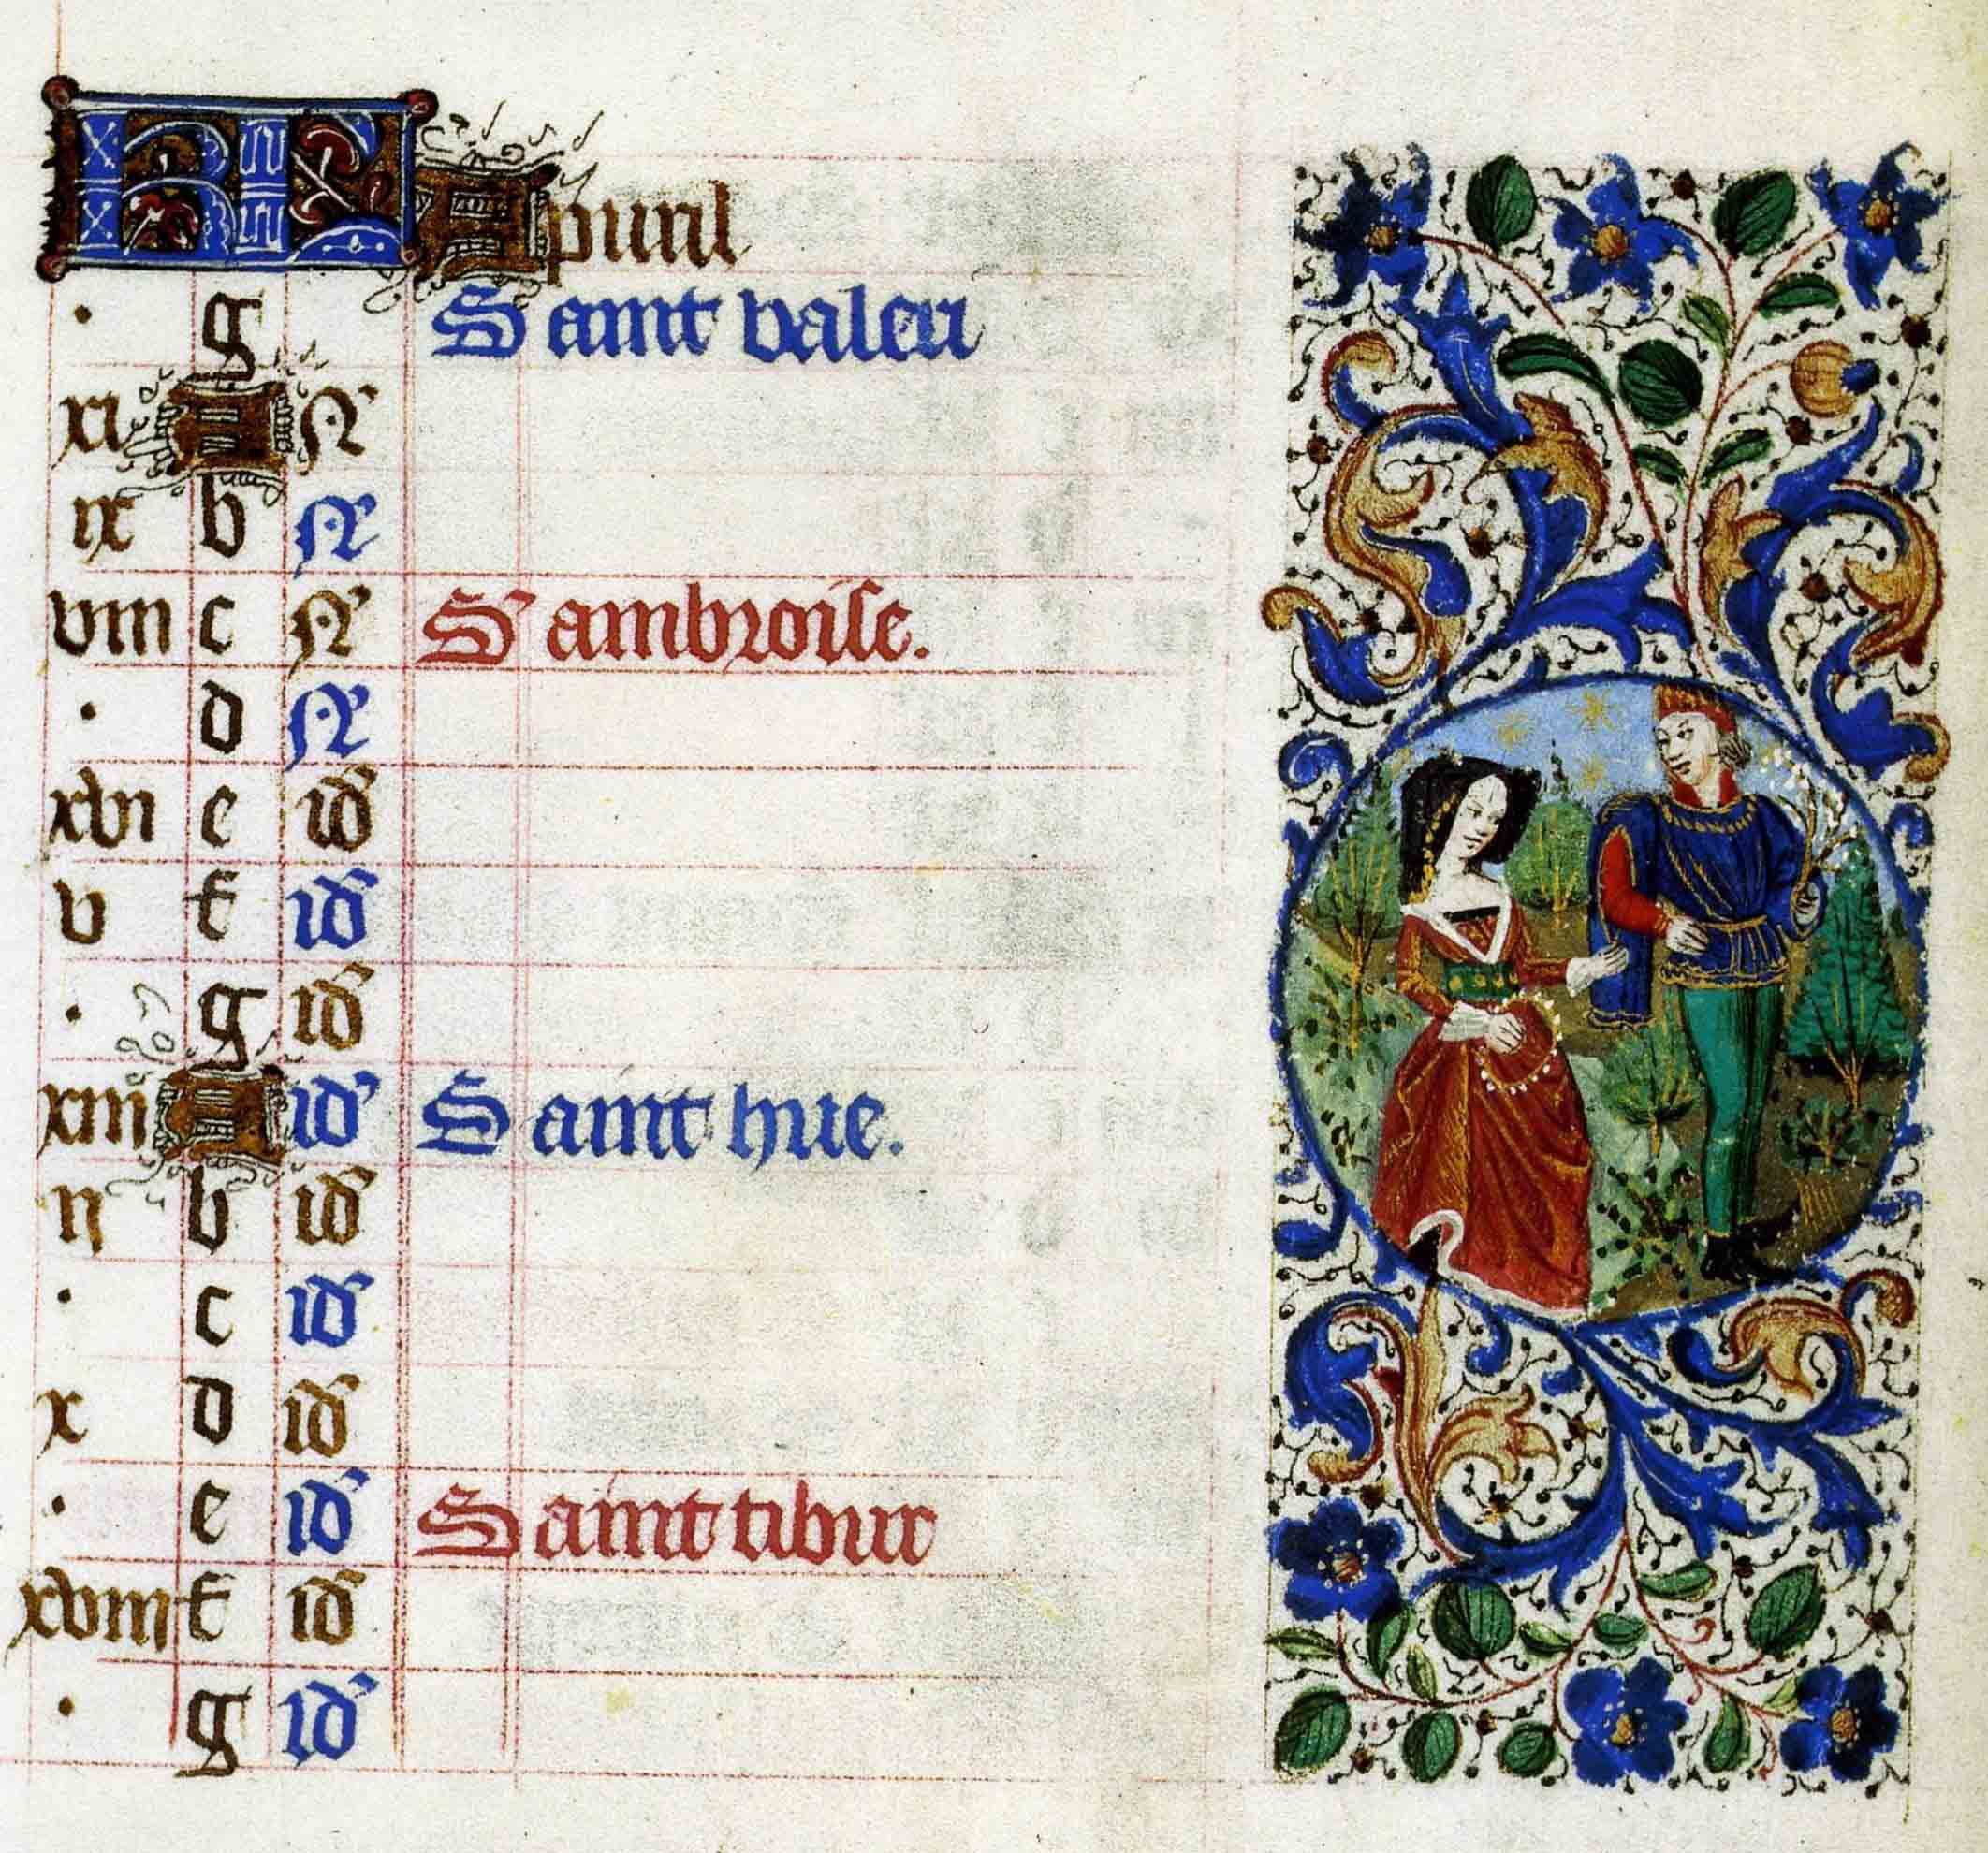 KL Apuril
. g Saint valeri
xi A N
ix b N
viii c N S' ambroise.
. d N
xvi e id
v f id
. g id
xiii A id Saint hue.
ii b id
. c id
x d id
. e id Saint tibur
xviii f id
. g id